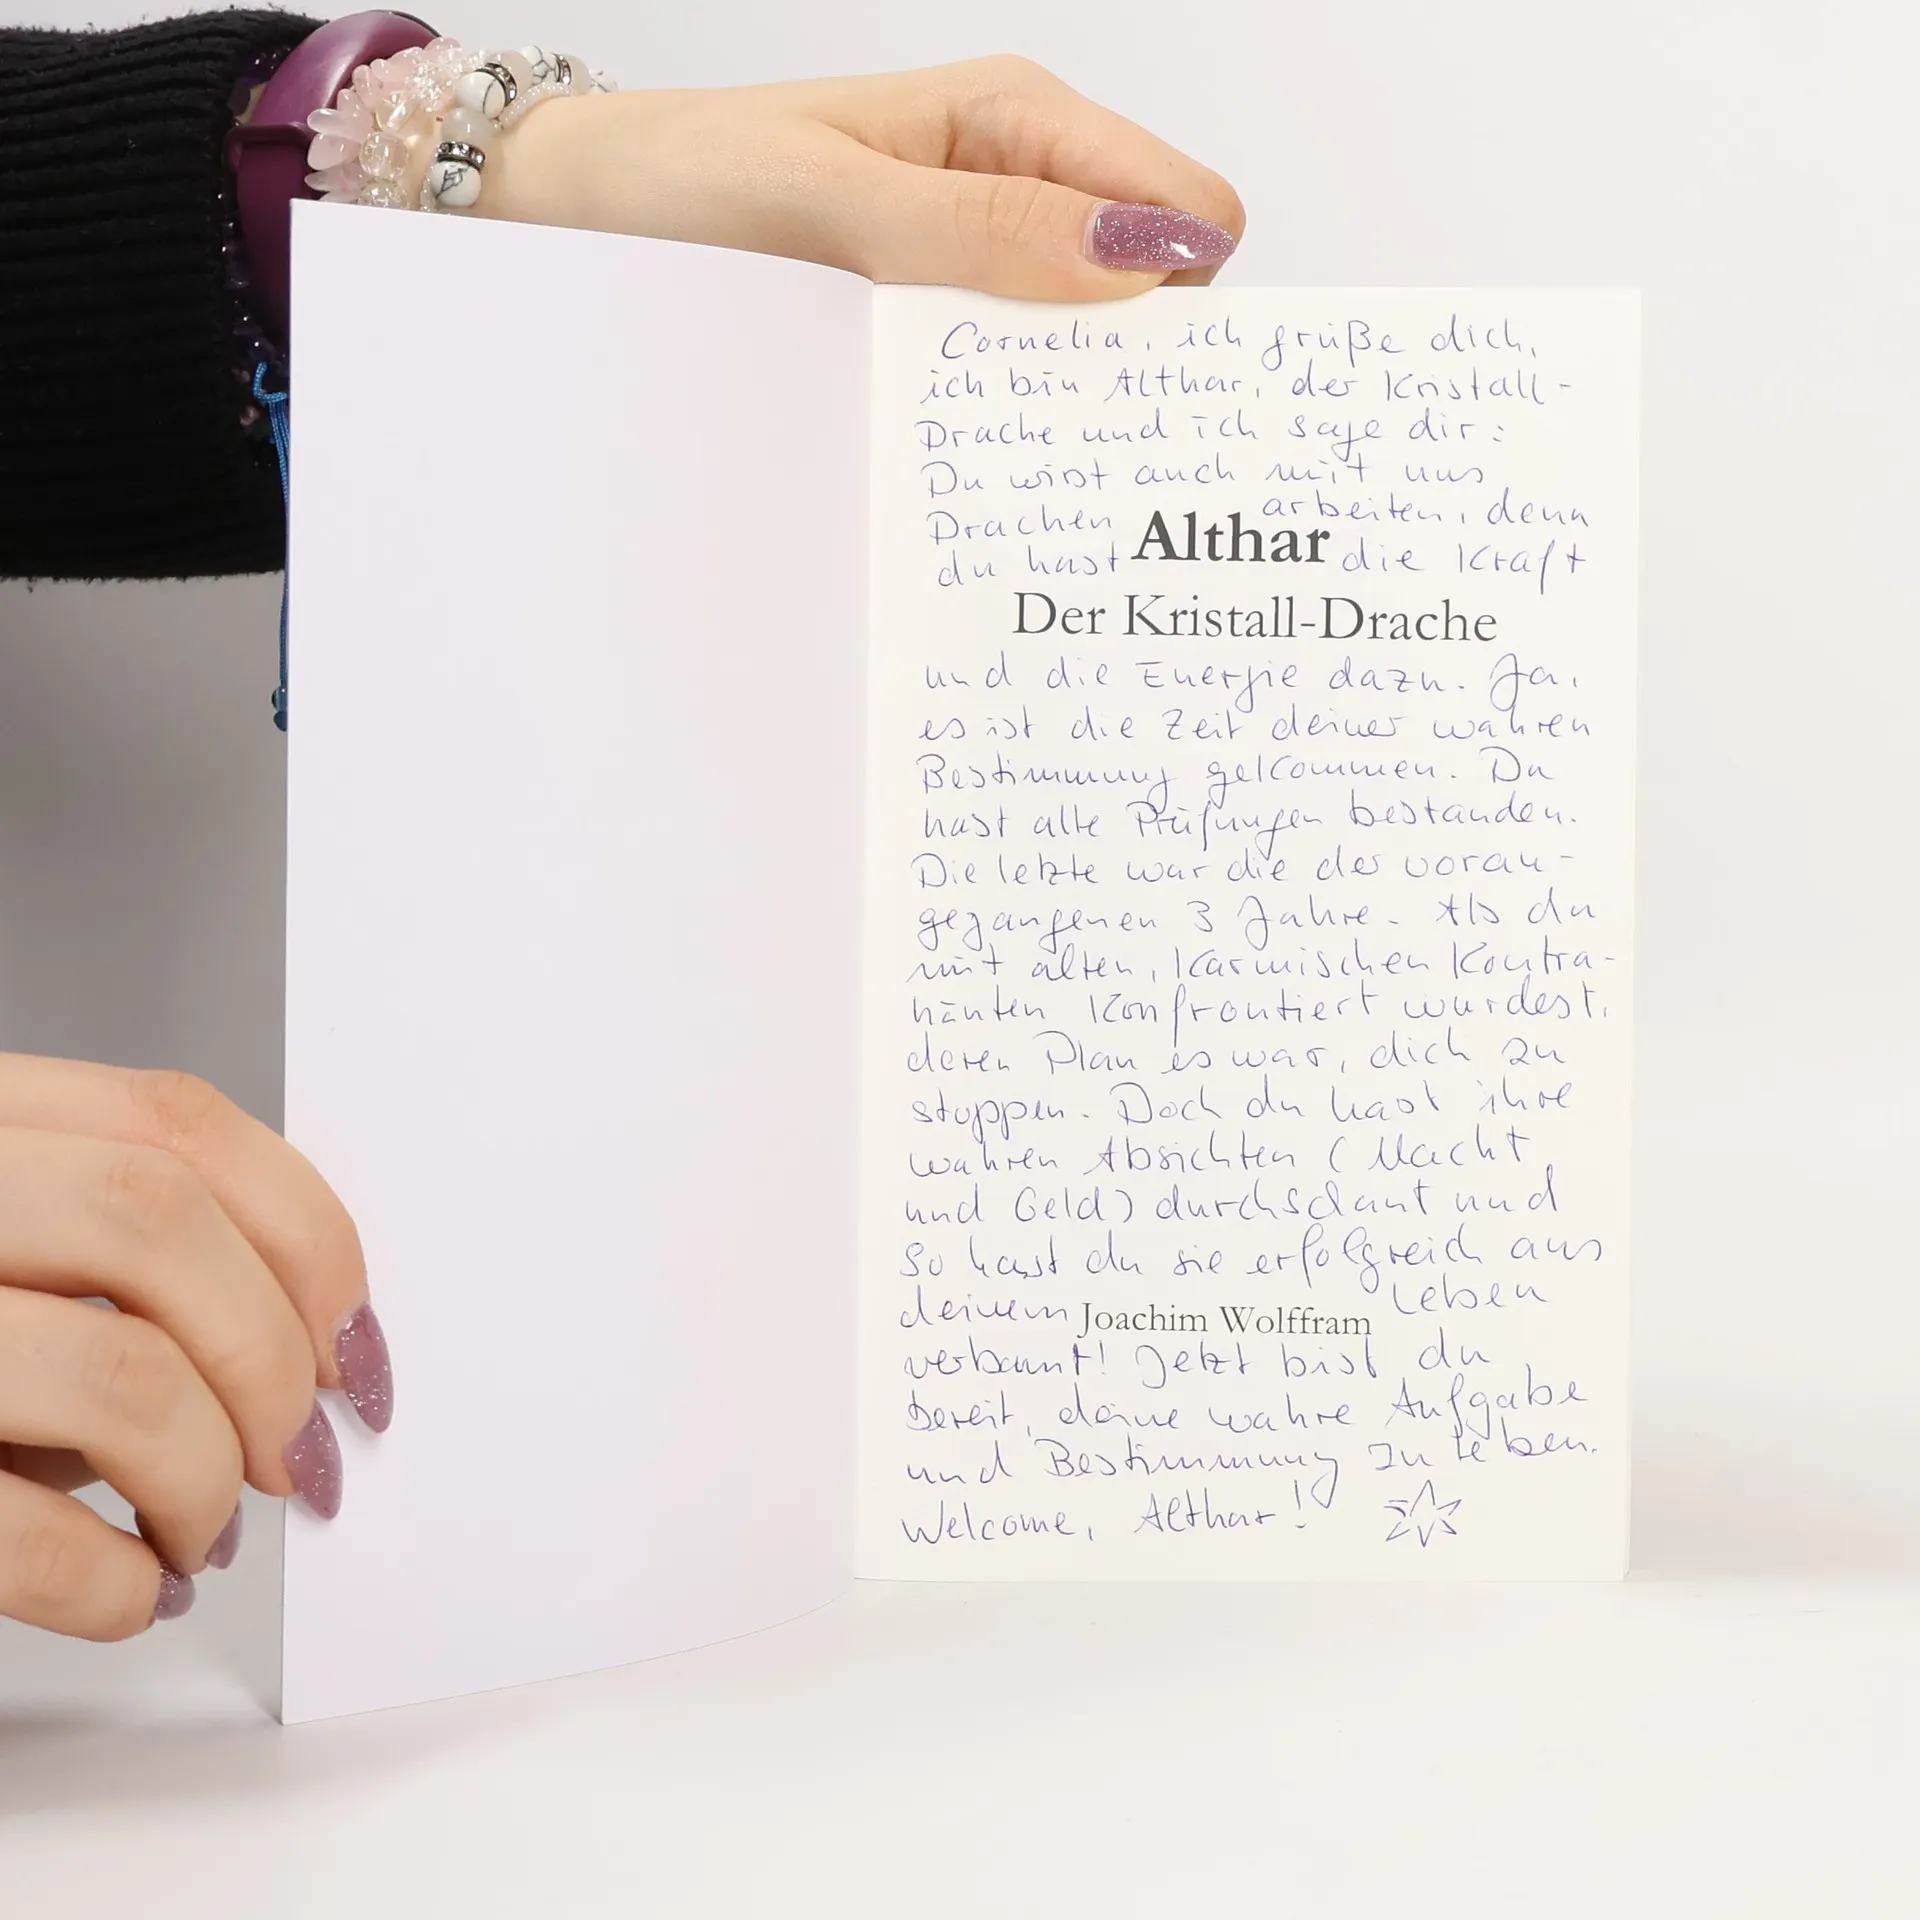 Cornelia, ich grüße dich,
ich bin Althar, der Kristall-
Drache und ich sage dir:
Du wirst auch mit uns
Drachen arbeiten, denn
Althar
du hast die Kraft
Der Kristall-Drache
und die Energie dazu. Ja,
es ist die Zeit deiner wahren
Bestimmung gekommen. Du
hast alle Prüfungen bestanden.
Die letzte war die der voran-
gegangenen 3 Jahre. Als du
mit alten, karmischen Kontra-
hänten konfrontiert wurdest,
deren Plan es war, dich zu
stoppen. Doch du hast ihre
wahren Absichten (Macht
und Geld) durchschaut und
so hast du sie erfolgreich aus
deinem Leben
Joachim Wolffram
verbannt! Jetzt bist du
bereit, deine wahre Aufgabe
und Bestimmung zu leben.
Welcome, Althar!